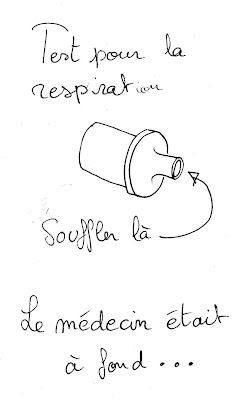 Test pour la
respiration
Souffler là
Le médecin était
à fond ...